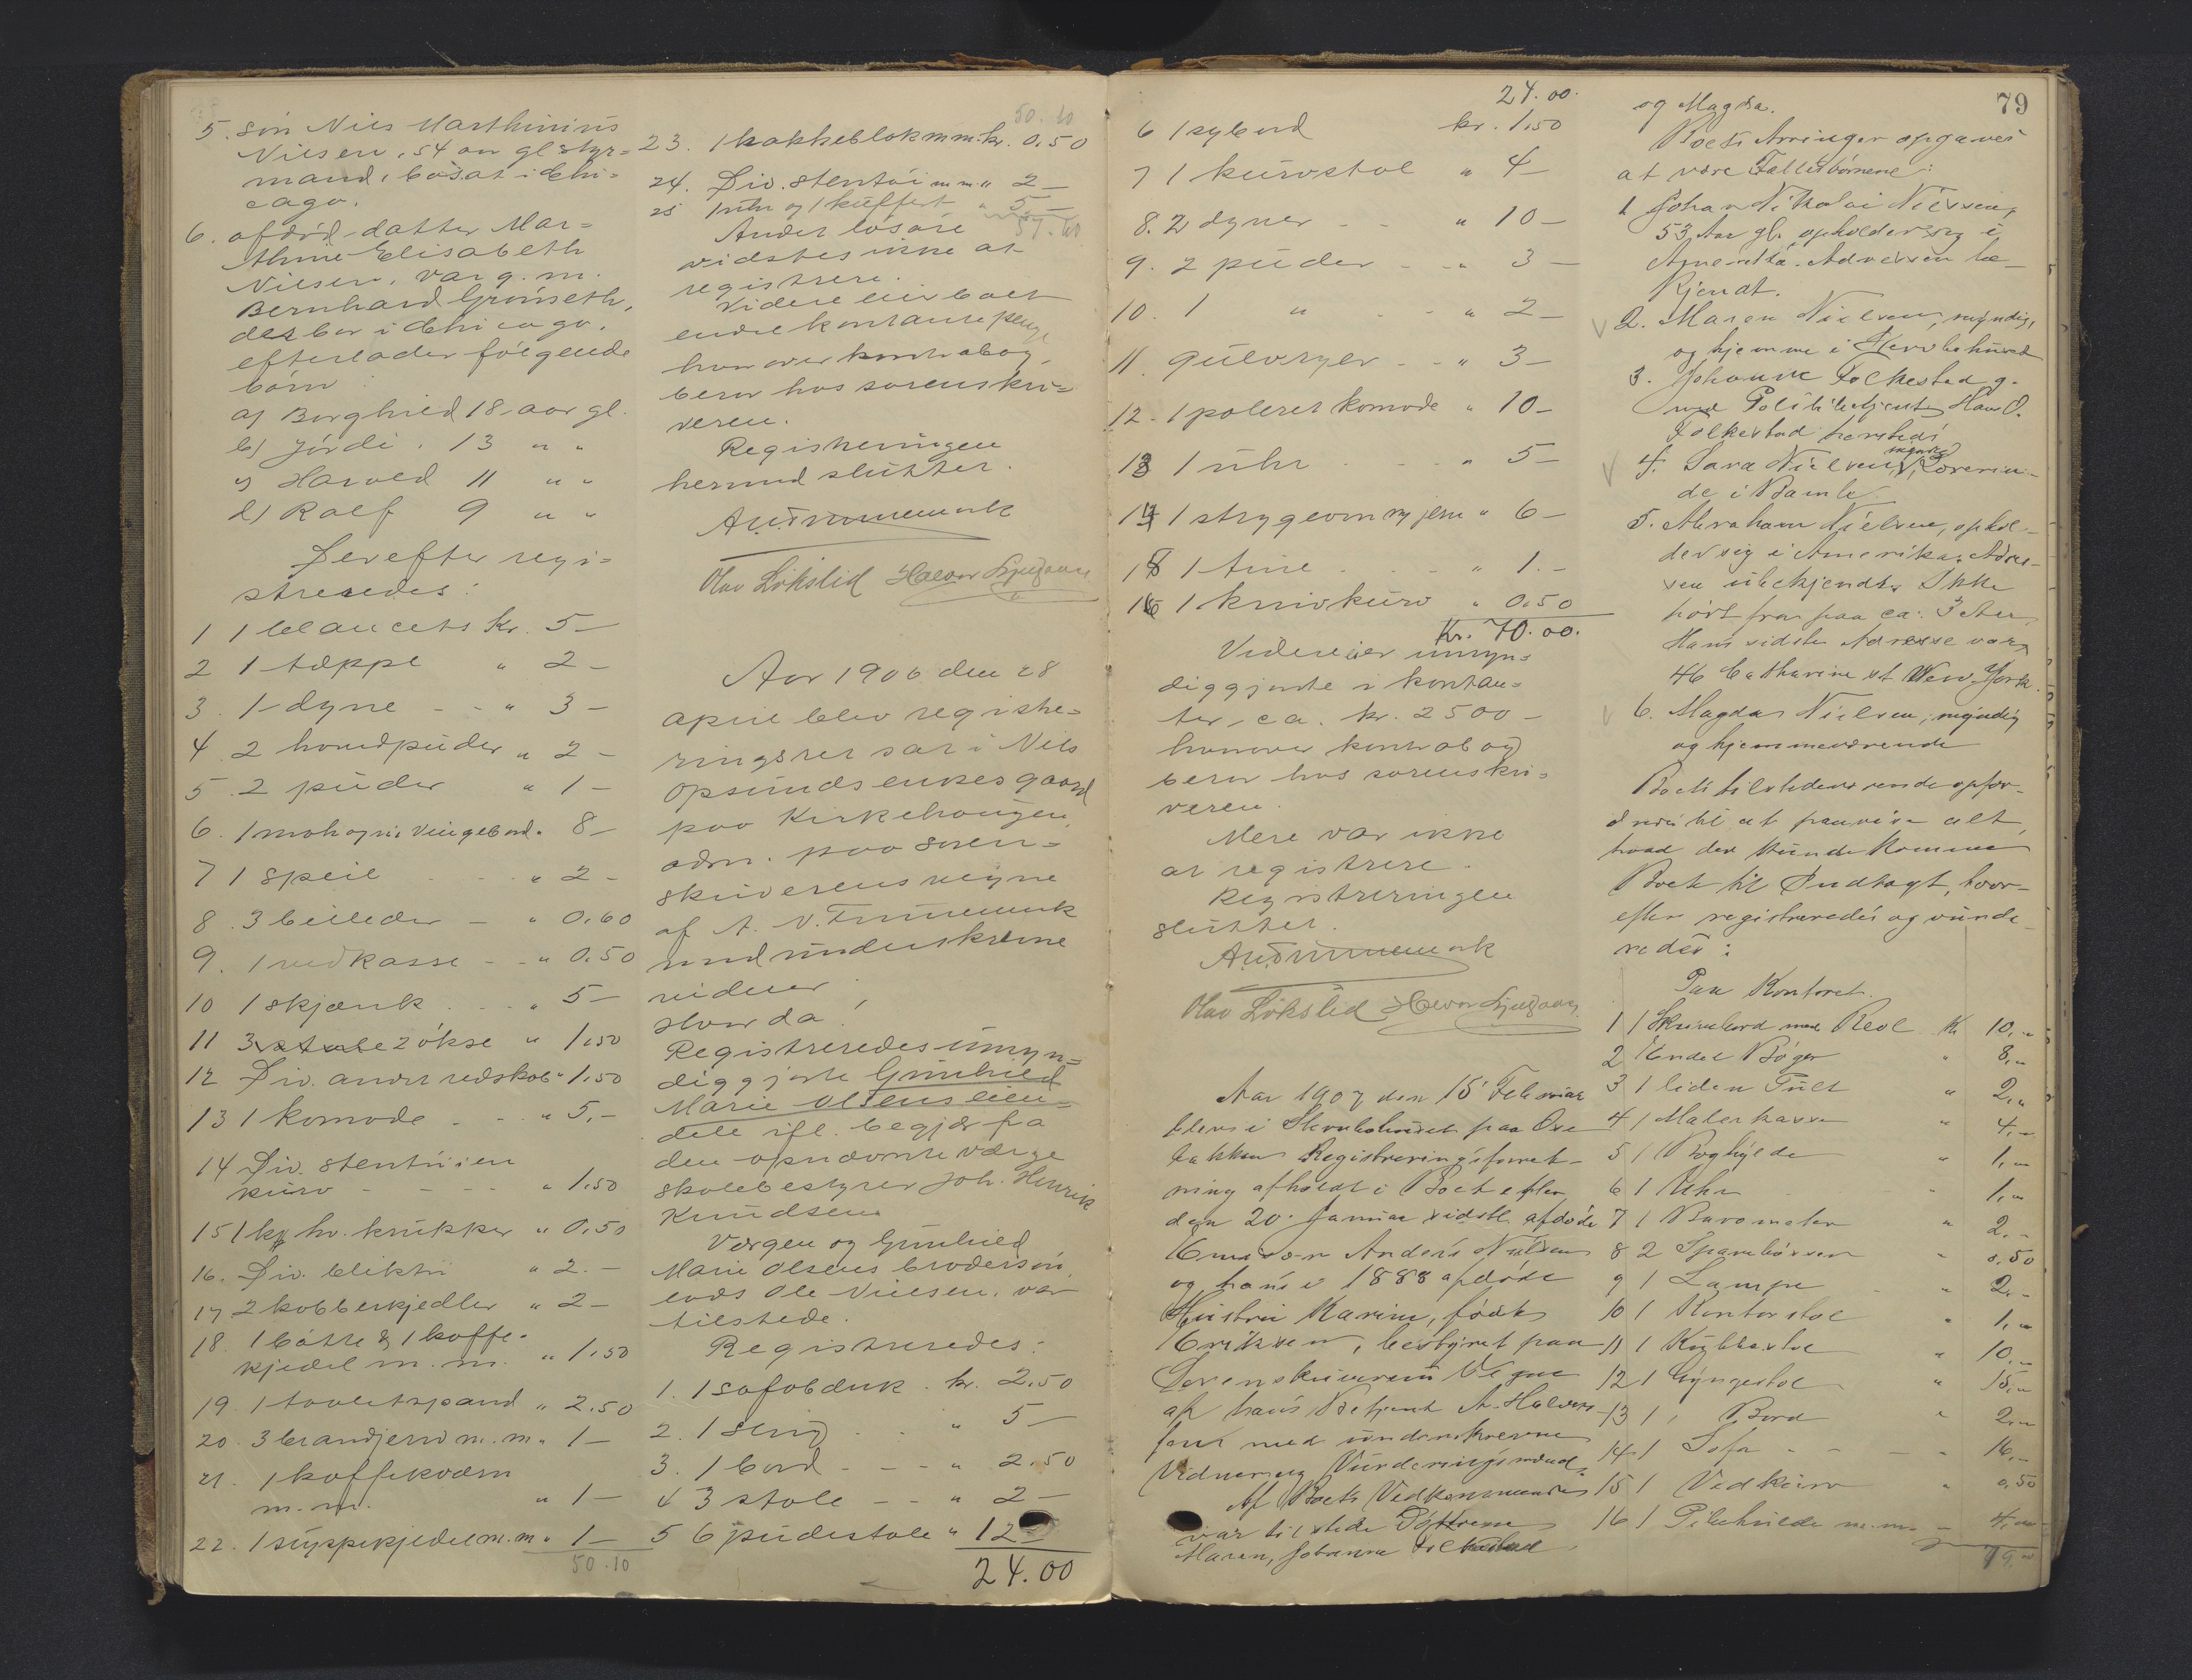 5. søn Nils Marthinius
Nilsen, 54 aar gl styr=
mand, bosat i Chi=
cago.
6. afdød datter Mar=
thine Elisabeth
Nilsen, var g. m.
Bernhard Grönseth,
des bor i Chicago.
efterlader følgende
børn :
a) Borghild 18 aar gl.
b) Jördi, 13 " "
c) Harald 11 " "
d) Ralf 9 " "
Derefter regi=
streredes:
1 1 blancets kr. 5 –
2 1 tæppe " 2 –
3. 1 dyne - - " 3 –
4 2 hovedpuder " 2 –
5. 2 puder " 1 –
6. 1 mahogni vingebord " 8 –
7 1 speil - - " 2 –
8. 3 billeder – " 0,60
9. 1 vedkasse - - " 0.50
10 1 skjænk . . " 5 –
11 3 økse " 1,50
12 Div. andet redskab " 1.50
13 1 komode - - " 5,-
14 Div. stentøi i en
kurv - - - " 1.50
15 1 hv. krukker " 0,50
16. Div. bliktøi " 2.–
17 2 kobberkjedler " 2 –
18. 1 bøtte & 1 kaffe-
kjedel m. m. " 1,50
19. 1 toiletspand " 2.50
20. 3 brandjern m. m. " 1 –
21. 1 kaffekværn
m. m. " 1 –
22. 1 suppekjedel m. m " 1 –
50.10
50.10
23. 1 hakkeblok m m. kr. 0,50
24. Div. stentøi m m. " 2 –
25 1 uhr og 1 kuffert " 5 –
Andet løsøre 57.60
vidstes ikke at
registrere.
Videre eier boet
endel kontante penge
hvorover kontrabog
beror hos sorenskri=
veren.
Registreringen
hermed sluttet.
Olav Løkslid Halvor
Aar 1906 den 28
april blev registre=
ringsret sat i Nils
Opsunds enkes gaard
paa Kirkehaugen,
adm. paa soren=
skriverens vegne
af A. V.
med underskrevne
vidner.
Hvor da:
Registreredes umyn=
diggjorte Gunhild
Marie Olsens eien=
dele ifl. begjær fra
den opnævnte værge
skolebestyrer Joh. Henrik
Knudsen
Værgen og Gunhild
Marie Olsens brodersøn,
lods Ole Nilsen, var
tilstede.
Registreredes:
1. 1 sofabænk . kr. 2.50
2. 1 seng - - " 5 –
3. 1 bord - - - " 2.50
4 3 stole - - " 2 –
5 6 pindestole " 12 –
24.00
24.00
6 1 sybord kr. 1,50
7 1 kurvstol " 4 –
8. 2 dyner - - " 10 –
9. 2 puder - - " 3 –
10. 1 " - - " 2 –
11. gulvryer - - " 3 –
12. 1 poleret komode " 10 –
13 1 uhr - - " 5 –
14 1 strygeovn og jern " 6 –
15 1 tine - - " 1.–
16 1 knivkurv " 0,50
Kr. 70.00.
Videre eier umyn=
diggjorte i kontan=
ter ca. kr. 2500 –
hvorover kontrabog
beror hos sorenskri=
veren.
Mere var ikke
at registrere.
Registreringen
sluttet.
Olav Løkslid Halvor
Aar 1907 den 15 Februar
blev i Stervbohuset paa Oxe
bakken Registreringsforret-
ning afholdt i Boet efter
den 20. Januar sidstl. afdøde
Anders Nielsen
og hans i 1888 afdøde
Hustru Karine, født
Eriksen, bestyret paa
Sorenskriverens Vegne
af hans Betjent A. Halvor-
sen med underskrevne
Vidner og Vurderingsmænd.
Af Boets Vedkommende
var tilstede Døttrene
Maren, Johanne Folkestad
79
og Magda.
Boets Arvinger opgaves
at være Fællesbørnene:
1 Johan Nikolai Nielsen,
53 Aar gl. opholder sig i
Amerika. Adressen be-
kjendt.
2. Maren Nielsen, myndig,
og hjemme i Stervbohuset
3. Johanne Folkestad g.
med Politibetjent Hans O.
Folkestad
4. Sara Nielsen, myndig, Lærerin-
de i Bamle.
5. Abraham Nielsen, ophol-
der sig i Amerika, Adres-
sen ubekjendt. Ikke
hørt fra paa ca. 3 Aar
Hans sidste Adresse var,
46 Catharine st New York.
6. Magda Nielsen, myndig
og hjemmeværende
Boets tilstedeværende opfor-
dredes til at paavise alt,
hvad der kunde komme
Boet til Indtægt, hvor-
efter registreredes og vurde-
redes:
Paa Kontoret.
1 1 Skrivebord med Reol Kr 10,-
2 Endel Bøger " 8,-
3 1 liden Pult " 2,-
4 1 Malerkasse " 4,-
5 1 Boghylde " 1,-
6 1 Uhr " 1,-
7 1 Barometer " 2,-
8 2 Sparebøsser " 0,50
9 1 Lampe " 2,-
10 1 Kontorstol " 1,-
11 1 Kubbestol " 10,-
12 1 Gyngestol " 15,-
13 1 Bord " 2,-
14 1 Sofa - - - " 16,-
15 1 Vedkurv " 0,50
16 1 Pibehylde m. m. – 4,-
79,-